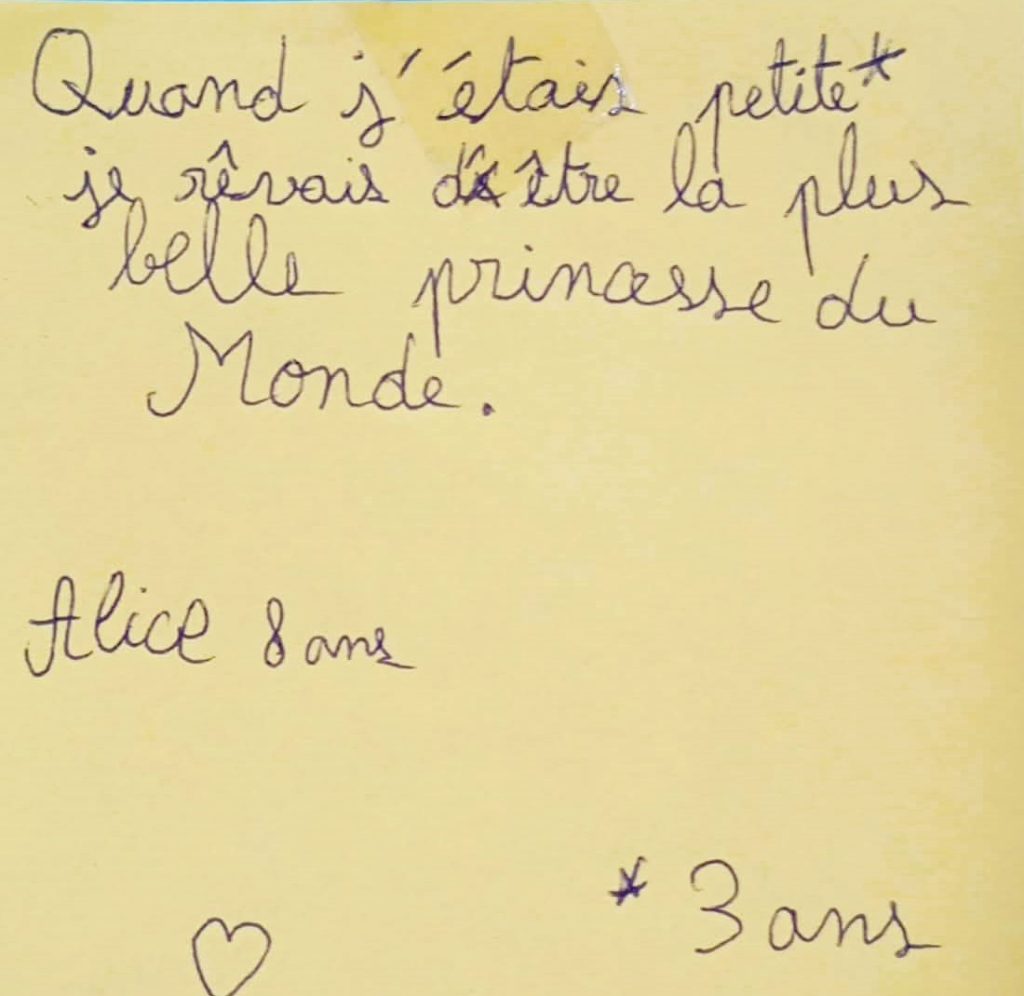 Quand j'étais petite*
je rêvais d'être la plus
belle princesse du
Monde.
Alice 8 ans
* 3 ans